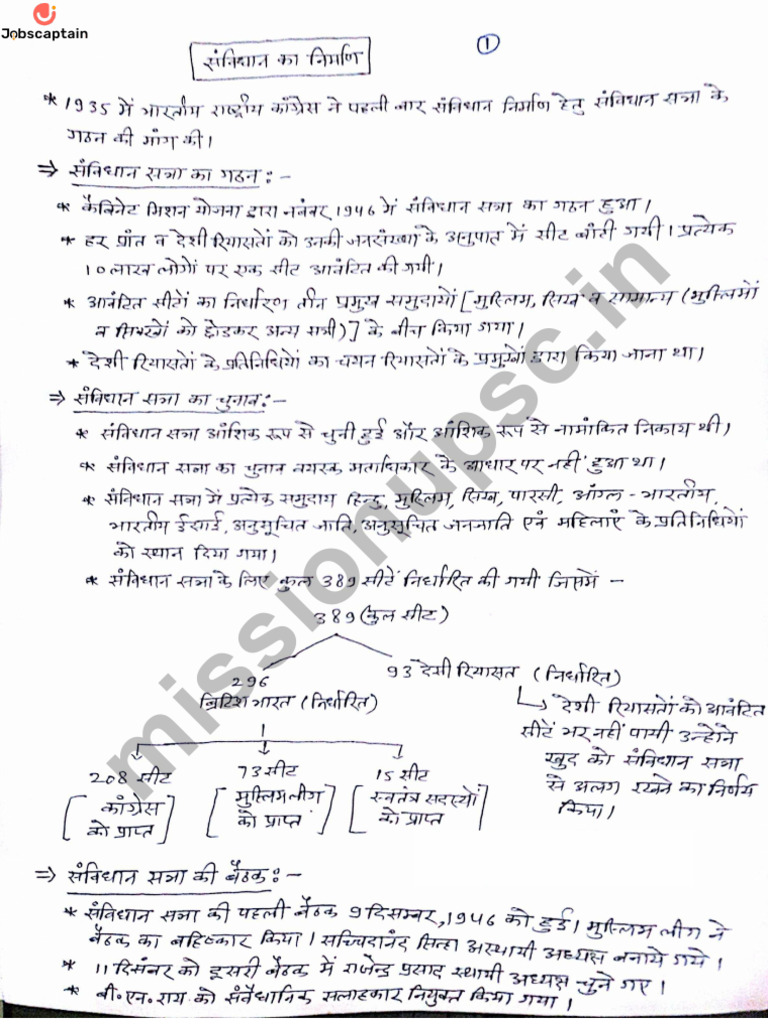 Jobscaptain
1
संविधान का निर्माण
* 1935 में भारतीय राष्ट्रीय काँग्रेस ने पहली बार संविधान निर्माण हेतु संविधान सभा के
गठन की मांग की।
⇒ संविधान सभा का गठन :-
* कैबिनेट मिशन योजना द्वारा नवंबर 1946 में संविधान सभा का गठन हुआ।
* हर प्रांत व देशी रियासतों को उनकी जनसंख्या के अनुपात में सीट बाँटी गयी। प्रत्येक
10 लाख लोगों पर एक सीट आवंटित की गयी।
* आवंटित सीटों का निर्धारण तीन प्रमुख समुदायों [मुस्लिम, सिख व सामान्य (मुस्लिमों
व सिखों को छोडकर अन्य सभी)] के बीच किया गया।
* देशी रियासतों के प्रतिनिधियों का चयन रियासतों के प्रमुखों द्वारा किया जाना था।
⇒ संविधान सभा का चुनाव :-
* संविधान सभा आंशिक रूप से चुनी हुई और आंशिक रूप से नामांकित निकाय थी।
* संविधान सभा का चुनाव वयस्क मताधिकार के आधार पर नहीं हुआ था।
* संविधान सभा में प्रत्येक समुदाय हिन्दु, मुस्लिम, सिख, पारसी, आंग्ल-भारतीय,
भारतीय ईसाई, अनुसूचित जाति, अनुसूचित जनजाति एवं महिलाएं के प्रतिनिधियों
को स्थान दिया गया।
* संविधान सभा के लिए कुल 389 सीटें निर्धारित की गयी जिसमें -
389 (कुल सीट)
296
ब्रिटिश भारत (निर्धारित)
93 देशी रियासत (निर्धारित)
देशी रियासतों को आवंटित
सीटें भर नहीं पायी उन्होंने
खुद को संविधान सभा
से अलग रखने का निर्णय
किया।
208 सीट
[काँग्रेस
को प्राप्त]
73 सीट
[मुस्लिम लीग
को प्राप्त]
15 सीट
[स्वतंत्र सदस्यों
को प्राप्त]
⇒ संविधान सभा की बैठक :-
* संविधान सभा की पहली बैठक 9 दिसम्बर, 1946 को हुई। मुस्लिम लीग ने
बैठक का बहिष्कार किया। सच्चिदानंद सिन्हा अस्थायी अध्यक्ष बनाये गये।
* 11 दिसंबर को दूसरी बैठक में राजेन्द्र प्रसाद स्थायी अध्यक्ष चुने गए।
* बी. एन. राय को संवैधानिक सलाहकार नियुक्त किया गया।
missionupsc.in